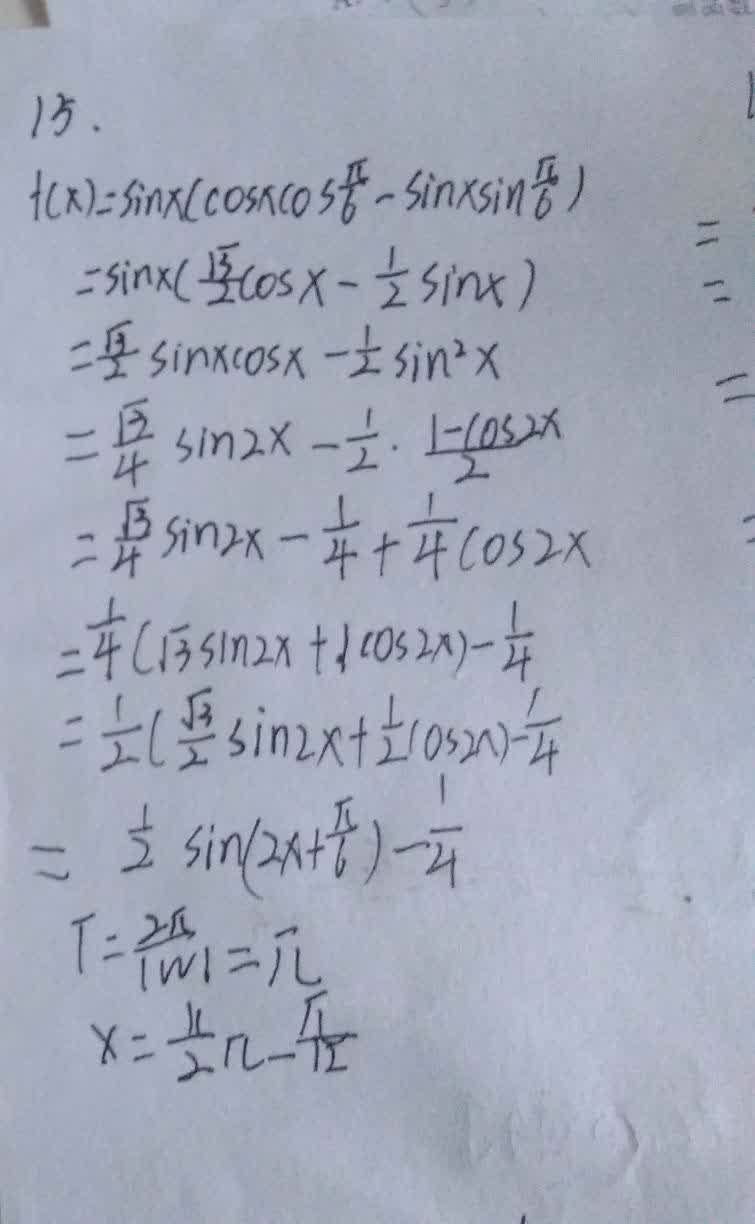 15.
f(x)=sinx(cosxcosπ/6-sinxsinπ/6)
=sinx(√3/2cosx-1/2sinx)
=√3/2sinxcosx-1/2sin²x
=√3/4sin2x-1/2·(1-cos2x)/2
=√3/4sin2x-1/4+1/4cos2x
=1/4(√3sin2x+1cos2x)-1/4
=1/2(√3/2sin2x+1/2cos2x)-1/4
=1/2sin(2x+π/6)-1/4
T=2π/|W|=π
=
=
=
=